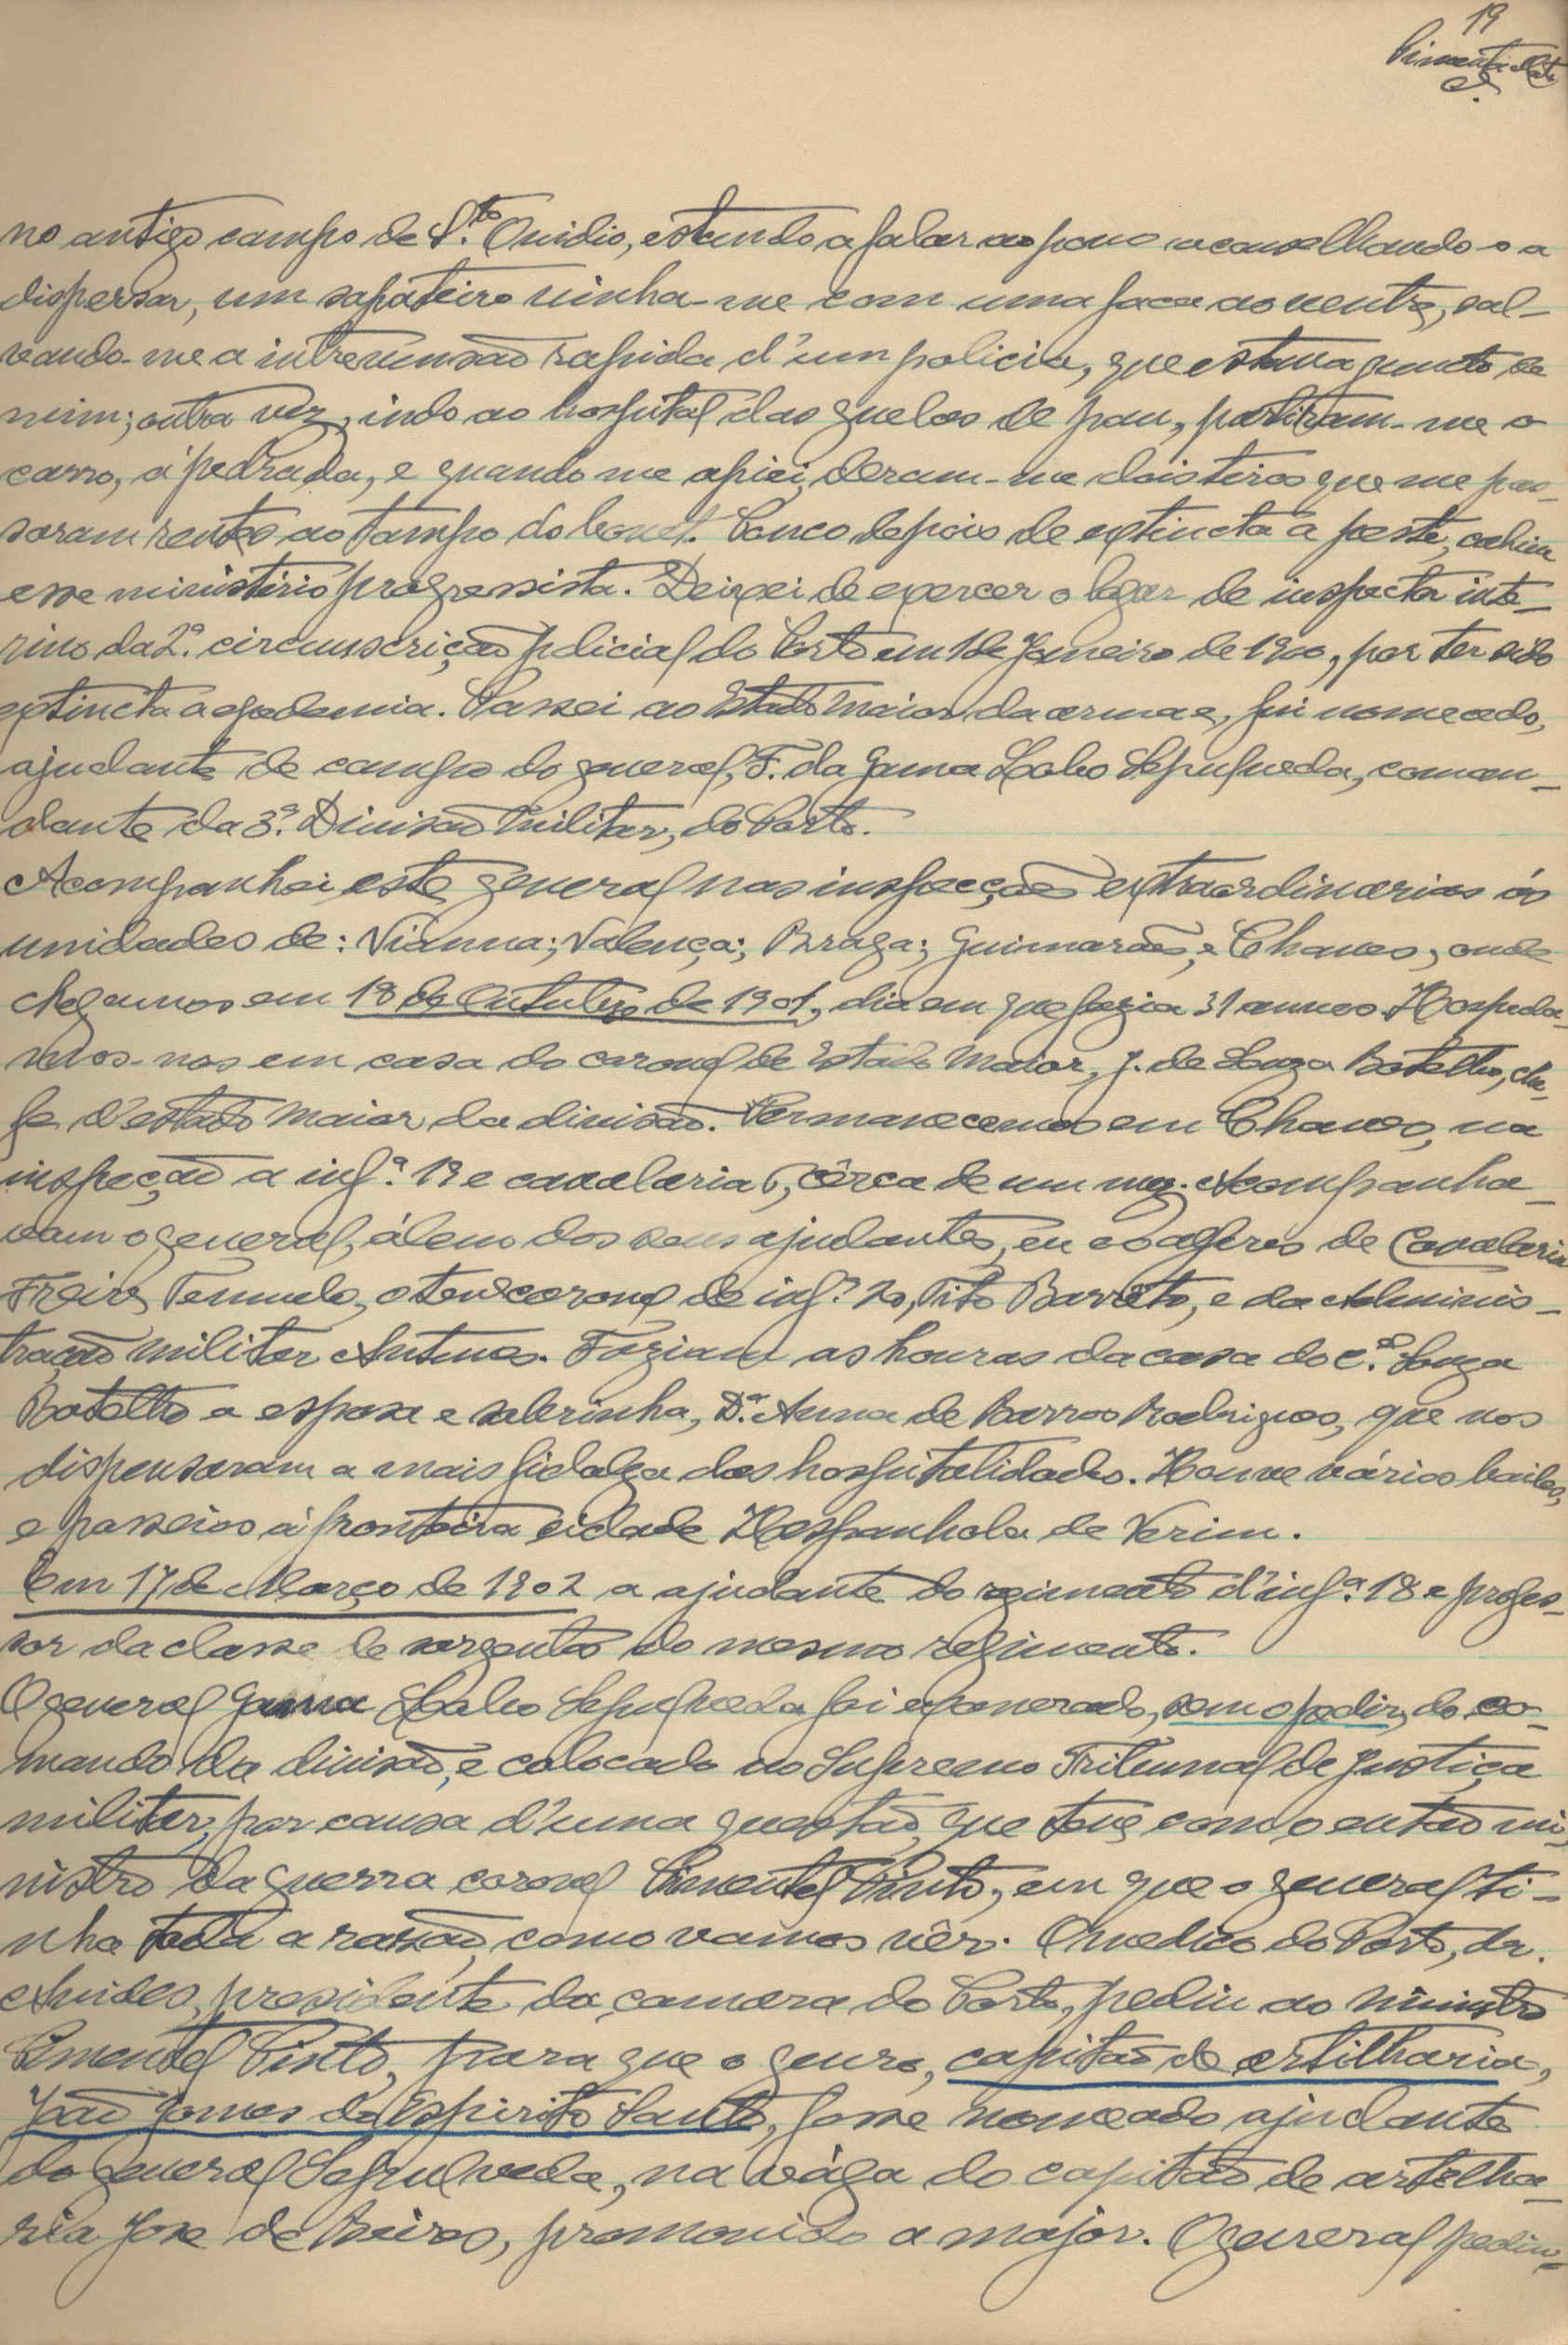 19
no antigo campo de S.to Ouvidio, estando a falar ao povo aconselhando-o a
dispersar, um sapateiro vinha-me com uma faca ao ventre, sal-
vando-me a intrevensão rapida d'um policia, que estava junto de
mim; outra vez, indo ao hospital das guelas de pau, partiram-me o
carro, á pedrada, e quando me apiei, deram-me dois tiros que me pas-
saram rentes ao tampo do bonet. Pouco depois de extincta a peste, cahiu
esse ministério progressista. Deixei de exercer o logar de inspector inte-
rino da 2.ª circunscrição policial do Porto em 1 de Janeiro de 1900, por ter sido
extincta a epedemia. Passei ao Estado Maior da arma e, fui nomeado,
ajudante de campo do general, F. da Gama Lobo Sepulveda, coman-
dante da 3.ª Divisão Militar, do Porto.
Acompanhei este general nas inspecções extraordinarias ás
unidades de: Vianna; Valença; Braga; Guimarães, e Chaves, onde
chegamos em 18 de Outubro de 1901, dia em que fazia 31 annos. Hospeda-
mos-nos em casa do coronel de Estado Maior, J. de Souza Botelho, che-
fe d'estado maior da divisão. Permanecemos em Chaves, na
inspeção a inf.ª 19 e cavalaria 6, cêrca de um mez. Acompanha-
vam o general, álem dos seus ajudantes, eu e o alferes de Cavalaria
Freire Temudo, o ten.e coronel de inf.ª 20, Tito Barreto, e da Adminis-
tração militar Antunes. Faziam as honras da casa do c.el Souza
Botelho a esposa e sobrinha, D.ª Anna de Barros Rodrigues, que nos
dispensaram a mais fidalga das hospitalidades. Houve vários bailes,
e passeios á fronteira cidade Hespanhola de Verim.
Em 17 de Março de 1902 a ajudante do regimento d'inf.ª 18 e profes-
sor da classe de sargentos do mesmo regimento.
O general Gama Lobo Sepulveda foi exonerado, sem o pedir, do co-
mando da divisão, e colocado no Supremo Tribunal de Justiça
militar, por causa d'uma questão, que teve com o então mi-
nistro da guerra coronel Pimentel Pinto, em que o general ti-
nha toda a razão, como vamos vêr. O medico do Porto, dr.
presidente da camara do Porto, pediu ao ministro
Pimentel Pinto, para que o genro, capitão de artilharia,
João Gomes do Espirito Santo, fosse nomeado ajudante
do general Sepulveda, na vága do capitão de artelha-
ria Jose de promovido a major. O general pediu-